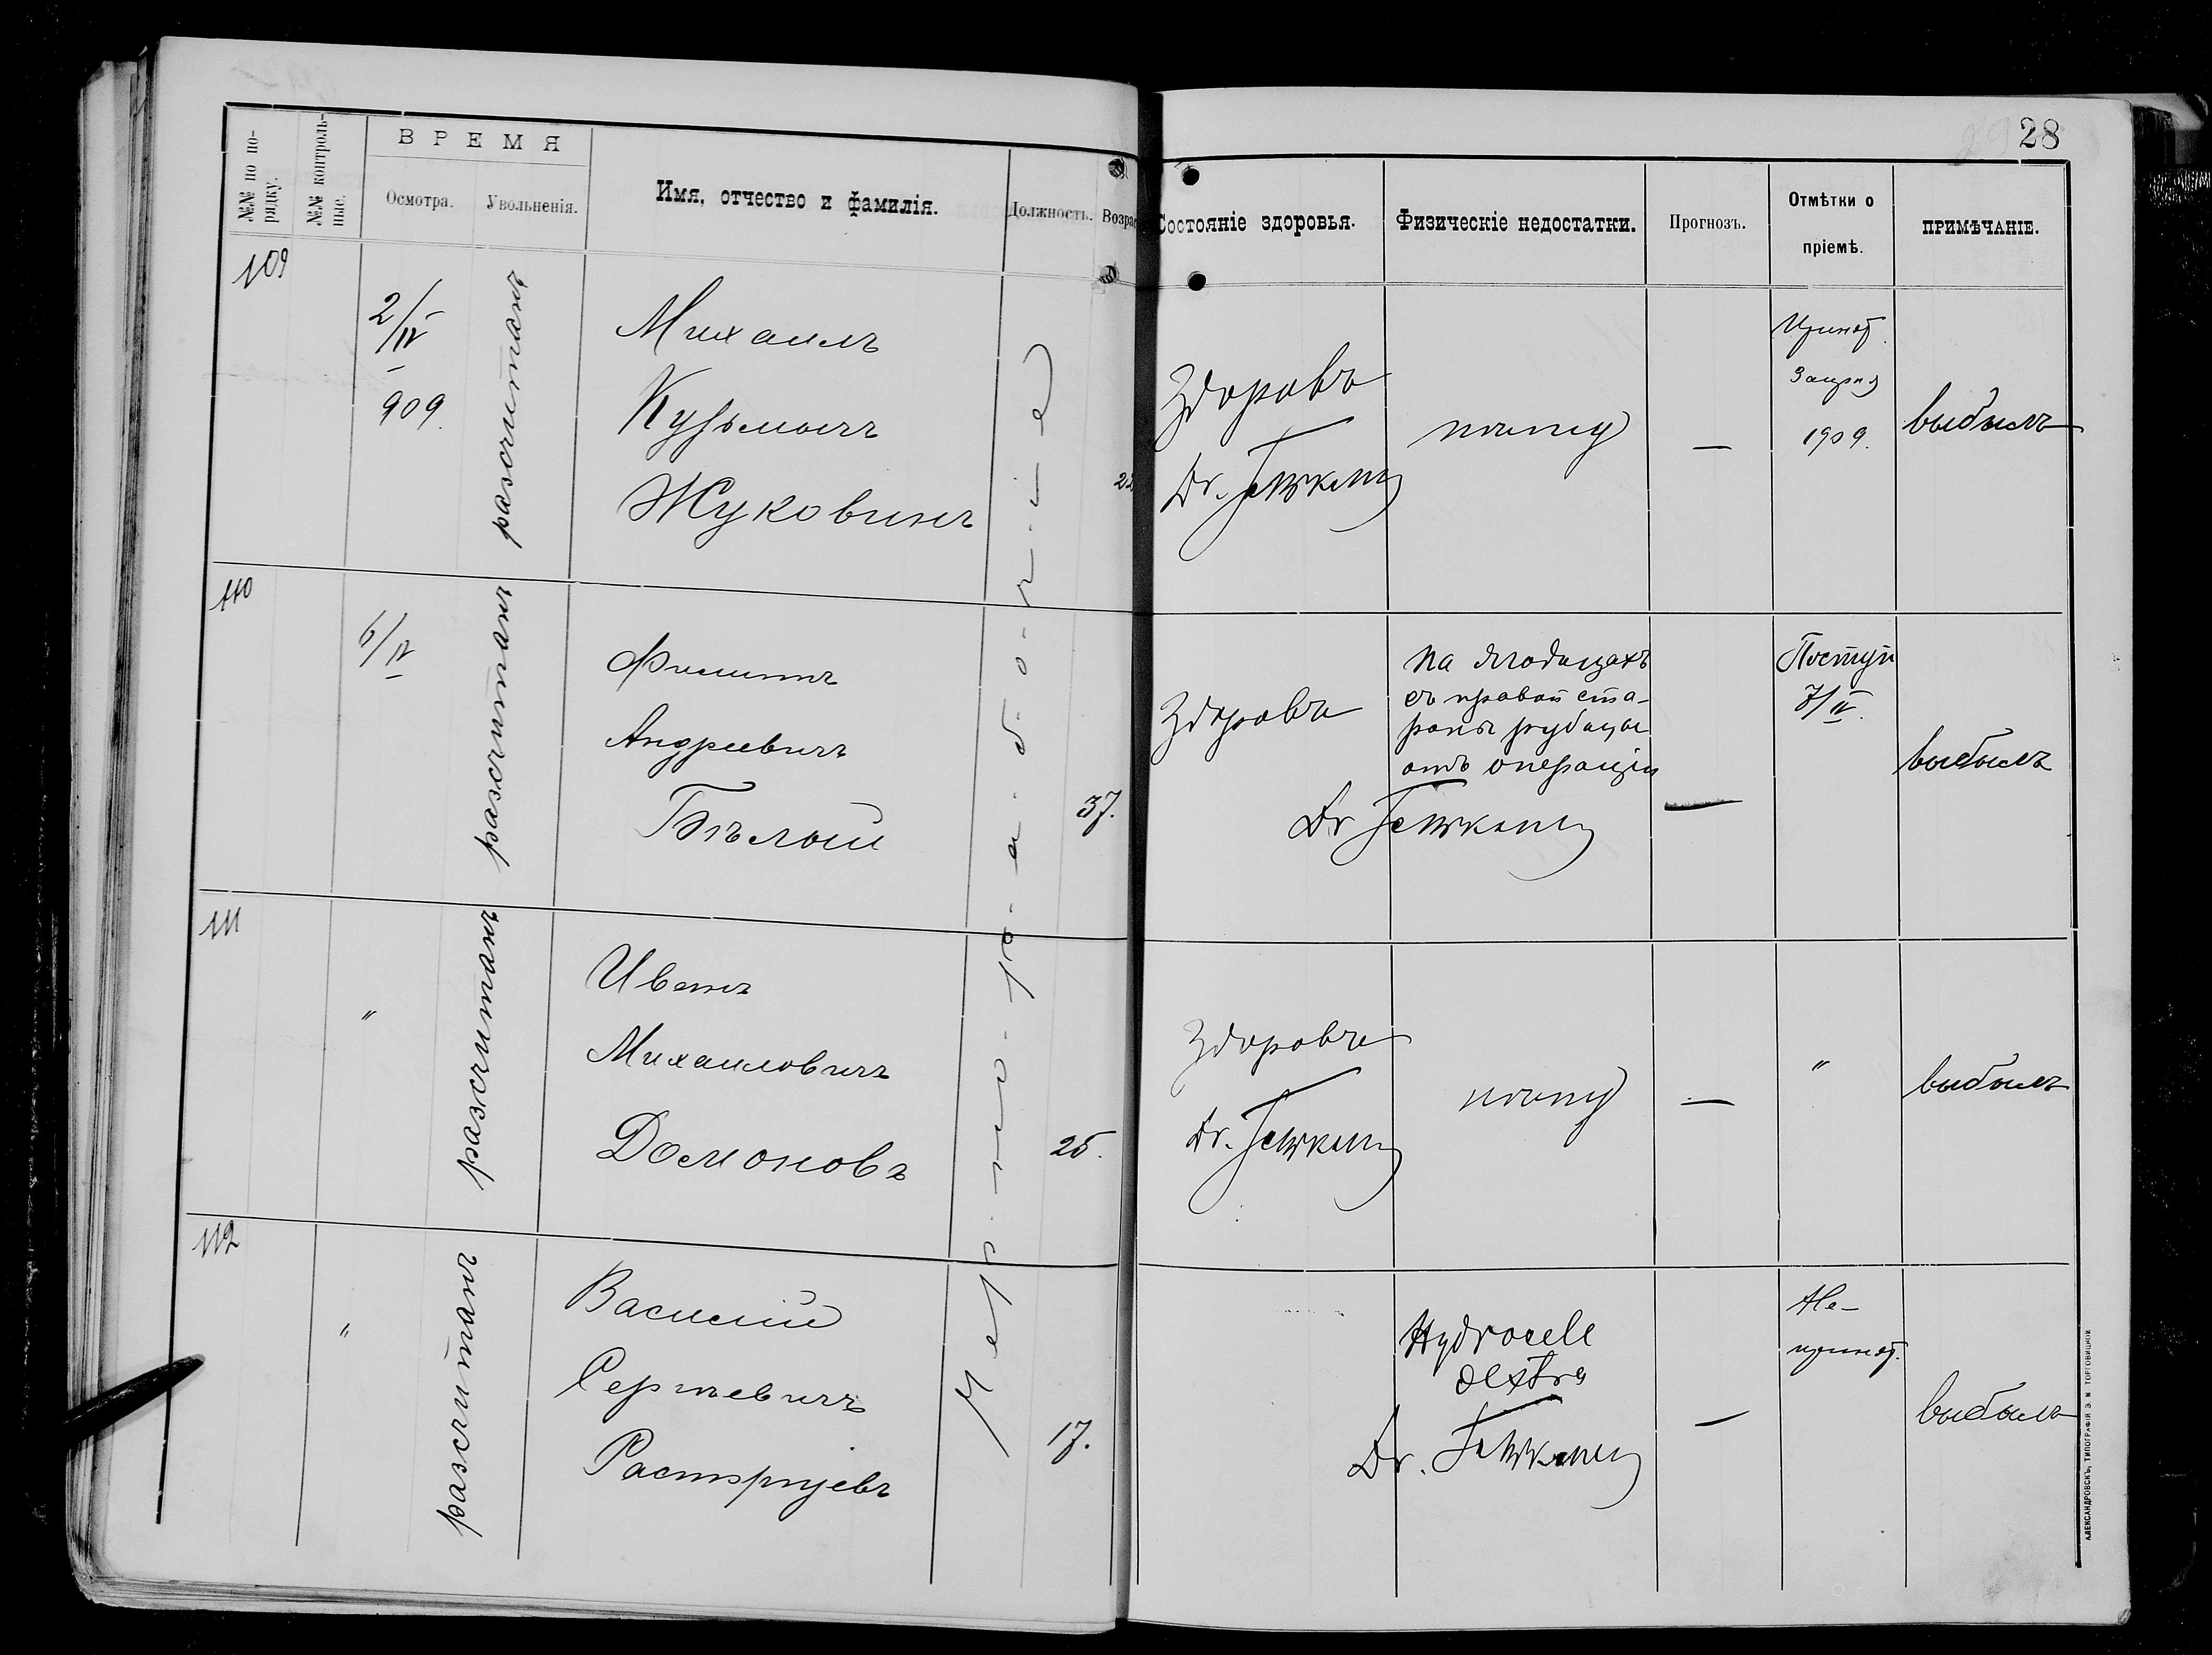 28
№№ по по-
рядку.
№№ контроль-
ные.
ВРЕМЯ
Осмотра.
Увольненія.
Имя, отчество и фамилія.
Должность.
Возрас
Состояніе здоровья.
Физическіе недостатки.
Прогнозъ.
Отмѣтки о
пріемѣ.
ПРИМѢЧАНІЕ.
Чер-но-ра-бо-чі-е
109
2/IV
909.
разсчитанъ
Михаилъ
Кузьмичъ
Жуковинъ
Здоровъ
Dr.
—
Принят.
3 апрѣля
1909.
выбылъ
110
6/IV
разсчитанъ
Филиппъ
Андреевичъ
Бѣлый
37.
Здоровъ
на ягодицахъ
съ правой сто-
роны рубецы
отъ операціи
Dr
—
Поступ
7/IV.
выбылъ
111
"
разсчитанъ
Иванъ
Михаиловичъ
Домоновъ
25.
Здоровъ
Dr.
—
"
выбылъ
112
"
разсчитанъ
Василій
Сергѣевичъ
Расторгуевъ
17.
Hydrocele
dextra
Dr.
—
Не-
принят.
выбылъ
АЛЕКСАНДРОВСКЪ, ТИПОГРАФІЯ Э. М. ТОРГОВИЦКОЙ